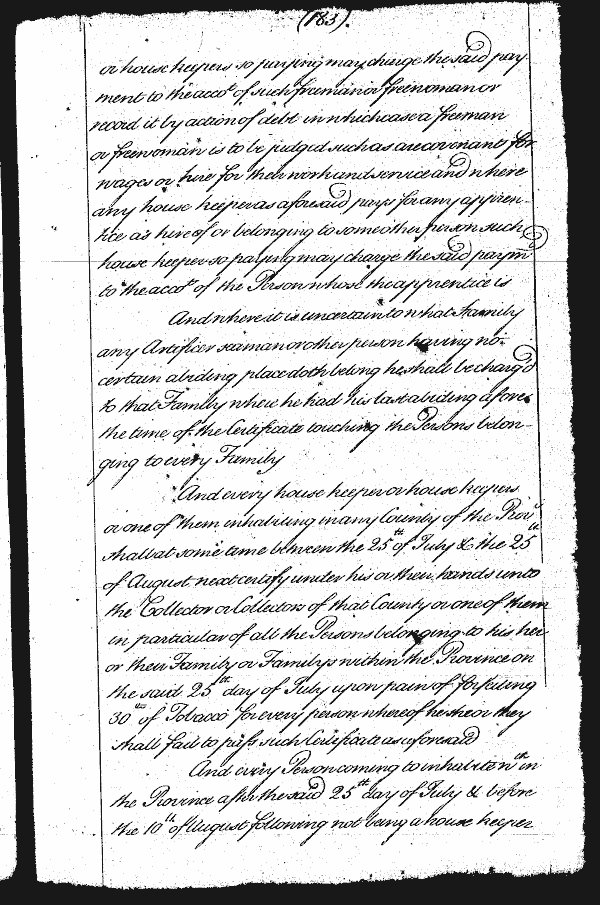 (183).
or house keepers so paying may charge the said pay
ment to the acco.t of such freeman or freewoman or
record it by action of debt in which case a freeman
or freewoman is to be judged such as are covenant for
wages or hire for their work and service and where
any house keeper as aforesaid pays for any appren-
tice as hire of or belonging to some other person such
house keeper so paying may charge the said paym.t
to the acco.t of the Person whose the apprentice is
And where it is uncertain to what Family
any Artificer seaman or other person having no
certain abiding place doth belong he shall be charg'd
to that Family where he had his last abiding afore
the time of the Certificate touching the Persons belon-
ging to every Family
And every house keeper or house keepers
or one of them inhabiting in any County of the Prov.
shall at some time between the 25th of July & the 25th
of August next certify under his or their hands unto
the Collector or Collectors of that County or one of them
in particular of all the Persons belonging to his her
or their Family or Familys within the Province on
the said 25th day of July upon pain of forfeiting
30 of Tobacco for every person whereof he she or they
shall fail to pass such Certificate as aforesaid
And every Person coming to inhabit in
the Province after the said 25th day of July & before
the 10th of August following not being a house keeper